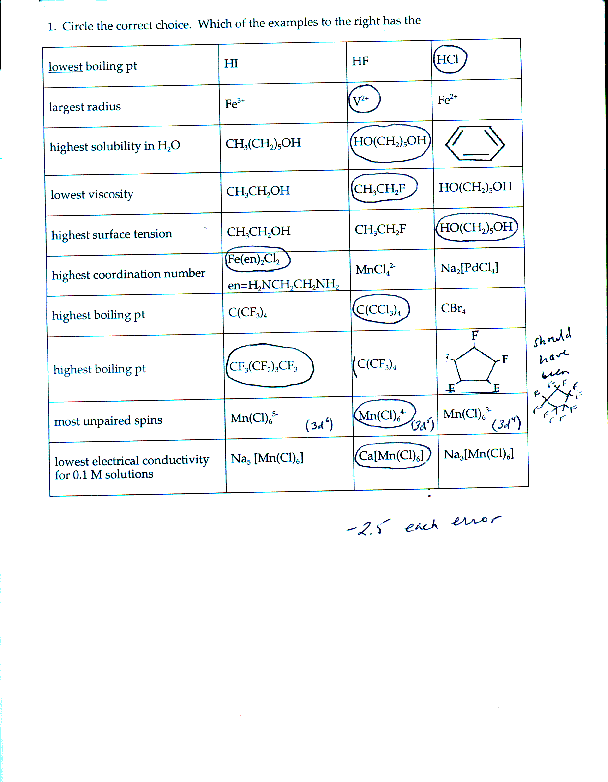 1. Circle the correct choice. Which of the examples to the right has the
lowest boiling pt HI HF HCl
largest radius Fe³⁺ V²⁺ Fe²⁺
highest solubility in H₂O CH₃(CH₂)₅OH HO(CH₂)₅OH
lowest viscosity CH₃CH₂OH CH₃CH₂F HO(CH₂)₅OH
highest surface tension CH₃CH₂OH CH₃CH₂F HO(CH₂)₅OH
highest coordination number Fe(en)₂Cl₂ MnCl₄²⁻ Na₂[PdCl₄]
en=H₂NCH₂CH₂NH₂
highest boiling pt C(CF₃)₄ C(CCl₃)₄ CBr₄
highest boiling pt CF₃(CF₂)₃CF₃ C(CF₃)₄ F F F F
should
have
been
most unpaired spins Mn(Cl)₆⁵⁻ (3d⁶) Mn(Cl)₆⁴⁻ (3d⁵) Mn(Cl)₆³⁻ (3d⁴)
lowest electrical conductivity Na₅ [Mn(Cl)₆] Ca[Mn(Cl)₆] Na₃[Mn(Cl)₆]
for 0.1 M solutions
-2.5 each error